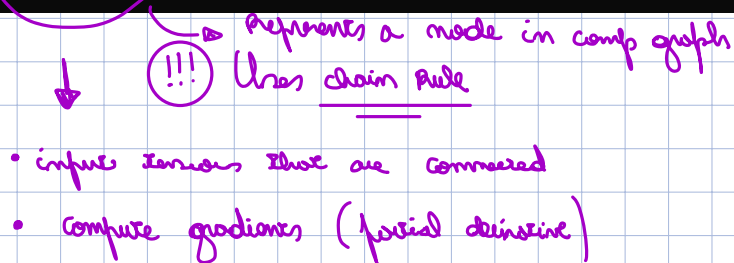 represents a node in comp graph
!!! Uses chain rule
• input tensors that are connected
• compute gradients (partial derivative)